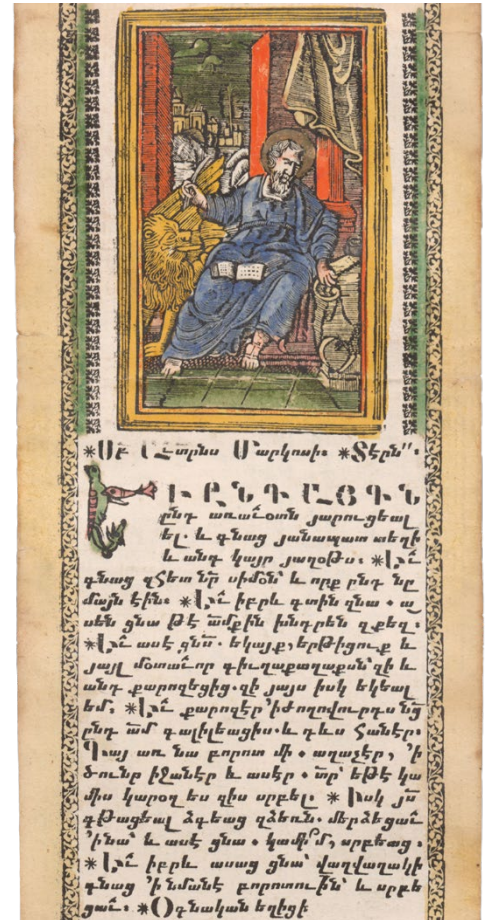 *Սբ Աւետրնս Մարկոսի։ *Տէրն"։
ԵՒ ԸՆԴ ԱՅԳՆ
ընդ առաւօտն յարուցեալ
ել. և գնաց յանապատ տեղի
և անդ կայր յաղօթս։ *Եւ̃
գնաց զՀետ նր̃ սիմօն՝ և որք ընդ նը
մայն էին։ *Եւ̃ իբրև գտին զնա . ա
սեն ցնա թէ ամ̃քին խնդրեն զքեզ։
*Եւ̃ ասէ ցնս̃. եկայք, երթիցուք և
յայլ մօտաւ̃որ գիւղաքաղաքսն՝ զի և
անդ քարոզեցից. զի յայս իսկ եկեալ
եմ։ *Եւ̃ քարոզէր ՚ի ժողովուրդս նց̃
ընդ ամ̃ գալիլեացիս. և դևս Հանէր։
Գայ առ նա բորոտ մի . աղաչէր, ՚ի
ծունր իջանէր և ասէր . տր̃՝ եթէ կա
միս կարօղ ես զիս սրբել։ * Իսկ յս̃
գթացեալ ձգեաց զձեռն. մերձեցաւ̃
՚ինա՝ և ասէ ցնա . կամի՛մ, սրբեաց.
*Եւ̃ իբրև ասաց ցնա՝ վաղվաղակի
գնաց ՚ի նմանէ բորոտուի̃ն՝ և սրբե
ցաւ̃։ *Օգնական եղիցի